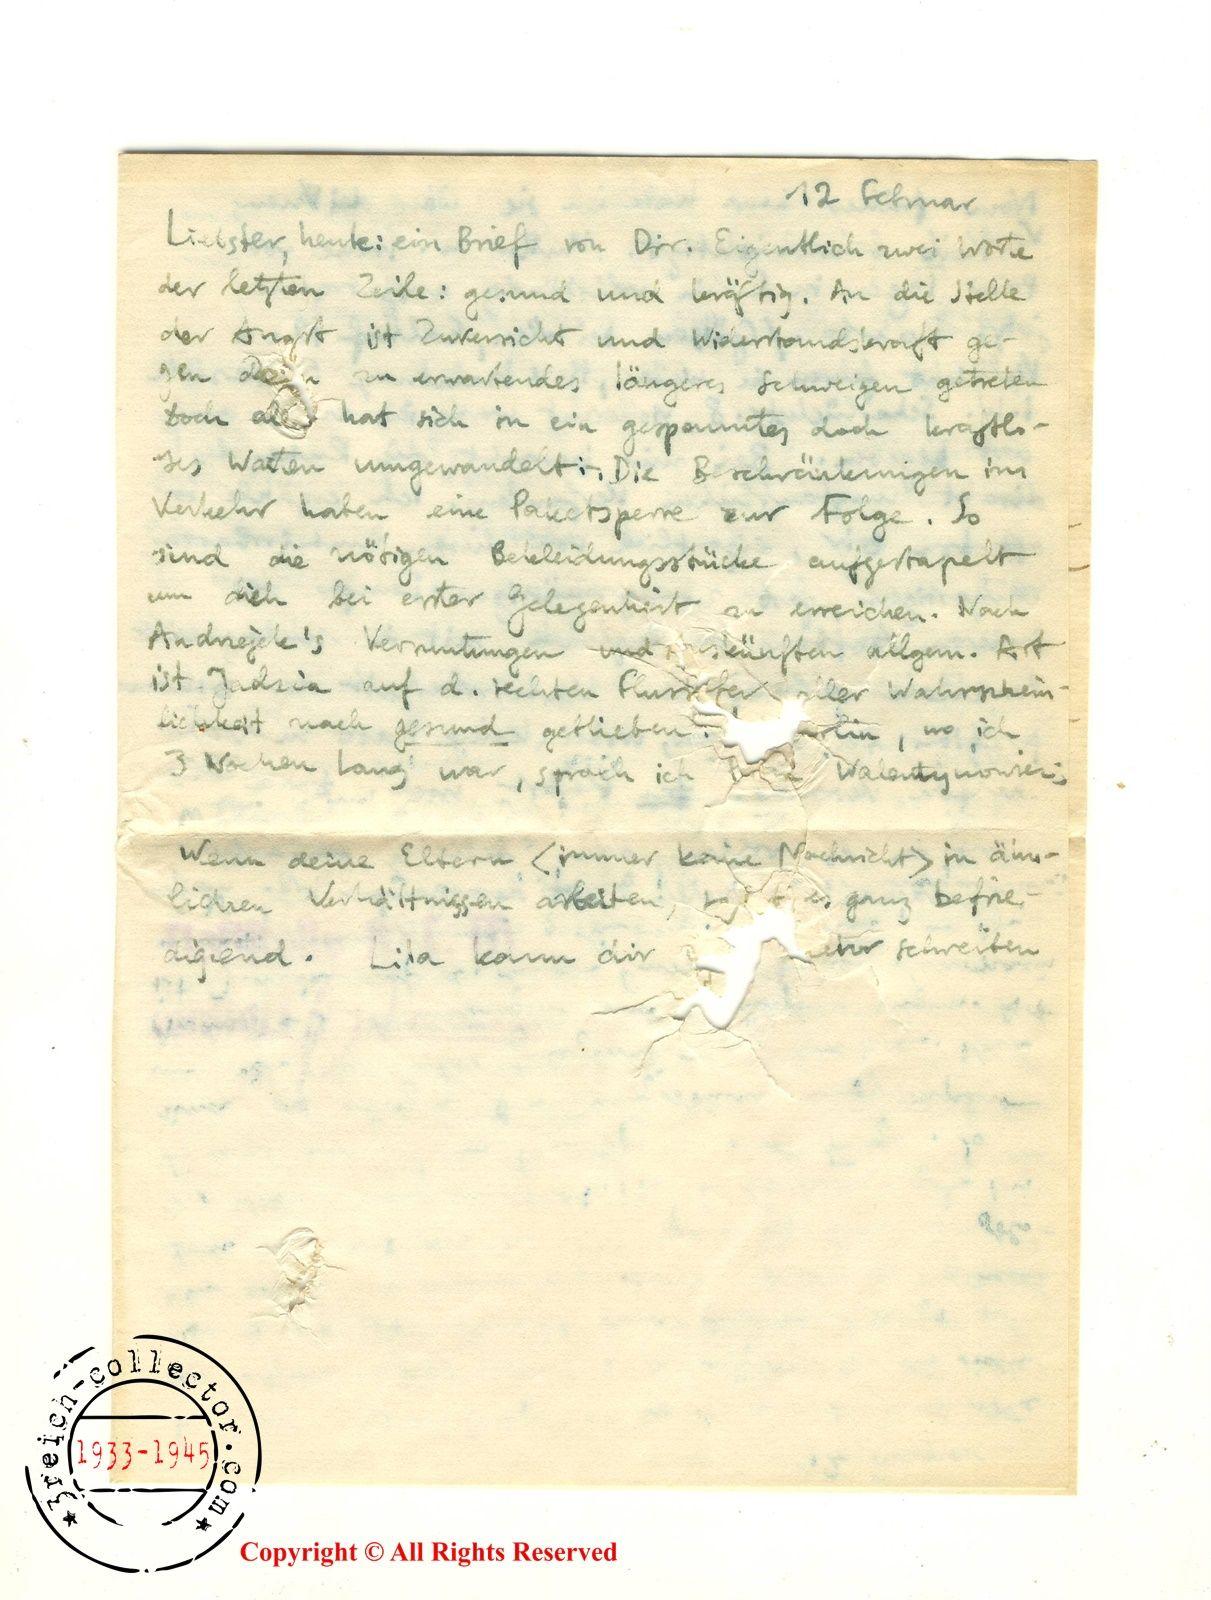 12 Februar
Liebster, heute: ein Brief von Dir. Eigentlich zwei Worte
der letzten Zeile: gesund und kräftig. An die Stelle
der Angst ist Zuversicht und Widerstandskraft ge-
gen Dein zu erwartendes längeres Schweigen getreten
doch hat sich in ein gespanntes doch kraftlo-
ses Warten umgewandelt. Die Beschränkungen im
Verkehr haben eine Paketsperre zur Folge. So
sind die nötigen Bekleidungsstücke aufgestapelt
um dich bei erster Gelegenheit zu erreichen. Nach
Andrzejek's Vermutungen und Auskünften allgem. Art
ist Jadzia auf d. rechten aller Wahrschein-
lichkeit nach gesund geblieben. wo ich
3 Wochen lang war, sprach ich
Wenn deine Eltern (immer keine Nachricht) in ähn-
lichen Verhältnissen arbeiten, es ganz befrie-
digend. Lila kann dir schreiben
3reich-collector.com
1933-1945
Copyright © All Rights Reserved